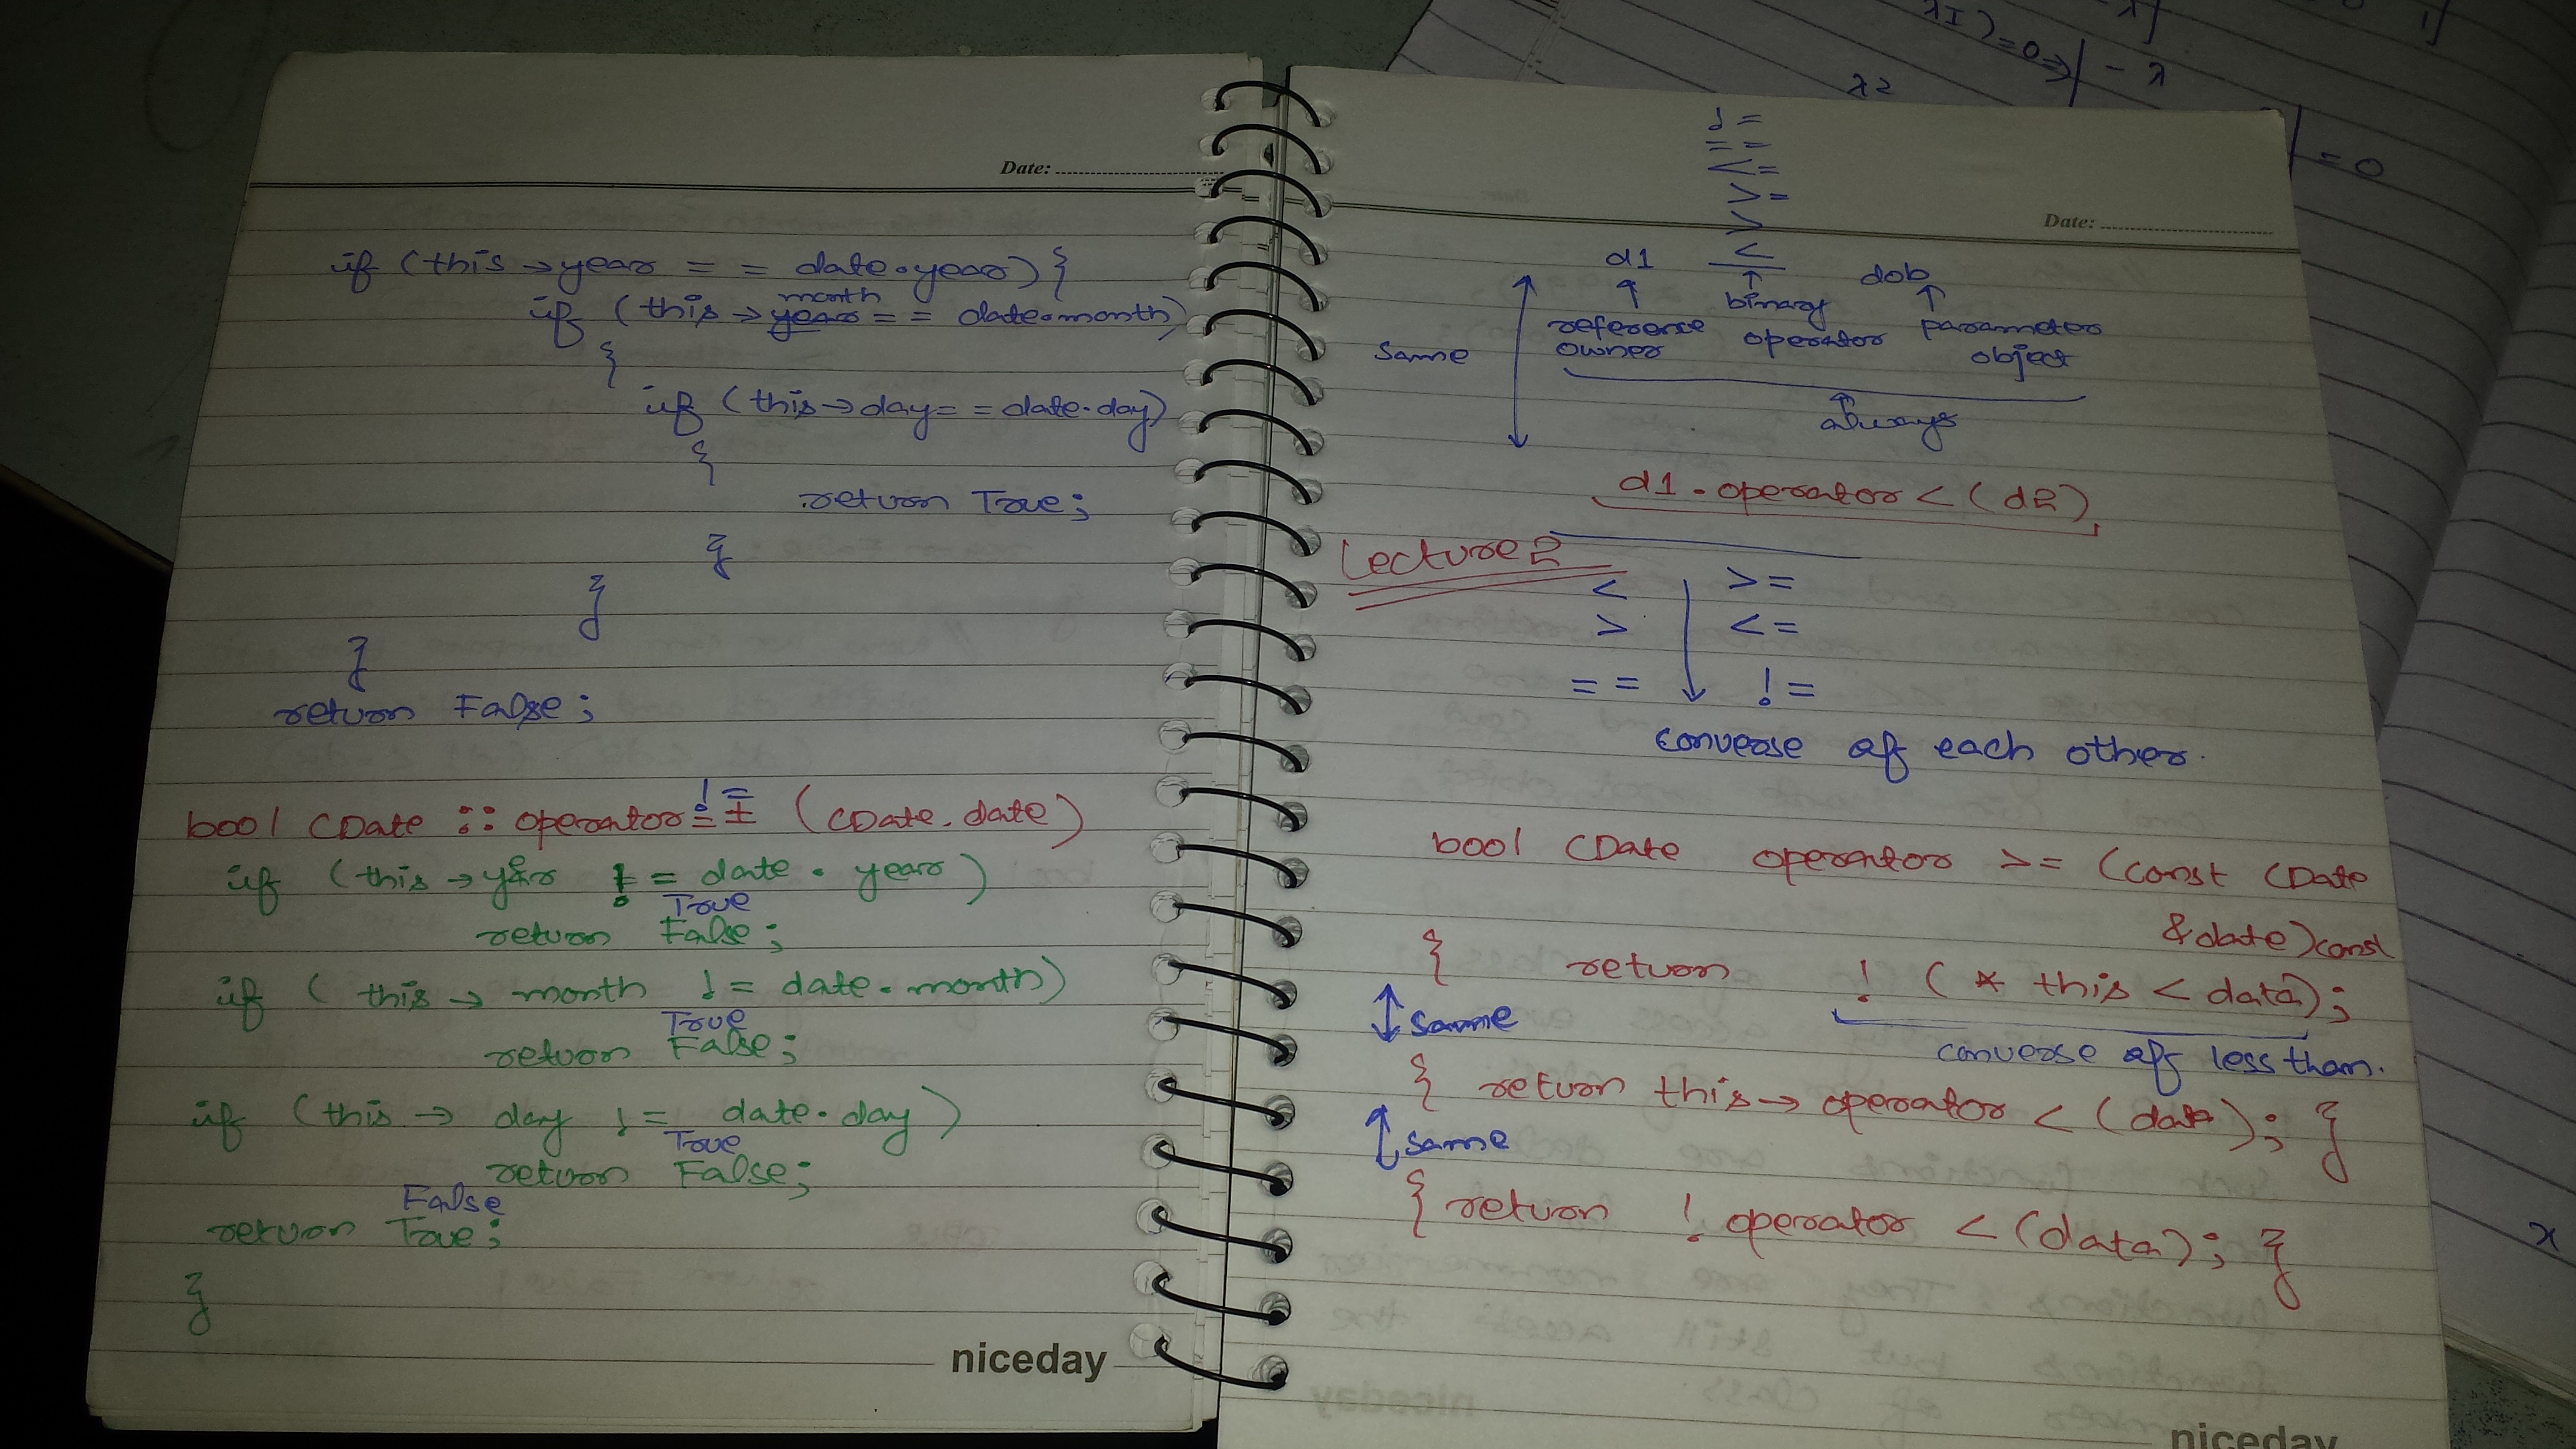 Date:
if (this → year == date.year) {
month
if (this → year == date.month)
{
if (this → day == date.day)
{
return True;
}
}
}
return False;
!=
bool CDate :: operator == (CDate. date)
if (this → year != date . year)
True
return False;
if ( this → month != date . month)
True
return False;
if (this → day != date . day)
True
return False;
False
return True;
}
niceday
!=
==
<=
>=
>
Date:
d1 < dob
reference owner
binary operator
parameter object
same
always
d1 . operator < (d2)
Lecture 2
< >=
> <=
== !=
converse of each other.
bool CDate operator >= (const CDate
&date) const
{ return ! (* this < data);
same
converse of less than.
{ return this → operator < (data); }
same
{ return ! operator < (data); }
niceday
λ2
= 0
x